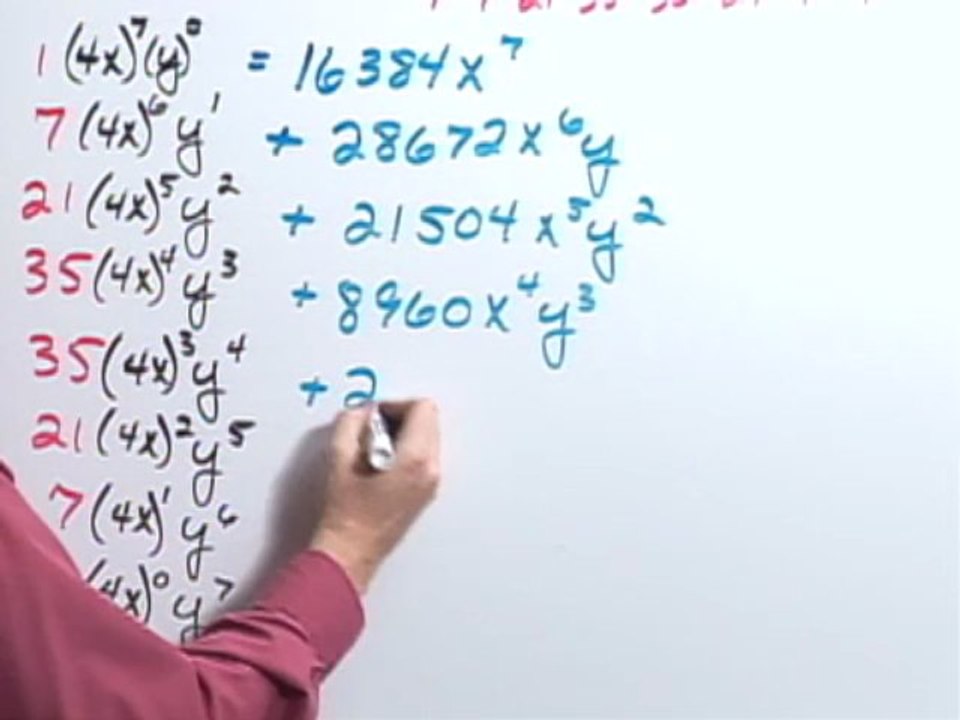 1 (4x)⁷(y)⁰ = 16384x⁷
7 (4x)⁶ y¹ + 28672x⁶y
21 (4x)⁵ y² + 21504x⁵y²
35 (4x)⁴ y³ + 8960x⁴y³
35 (4x)³ y⁴ + 2
21 (4x)² y⁵
7 (4x)¹ y⁶
(4x)⁰ y⁷